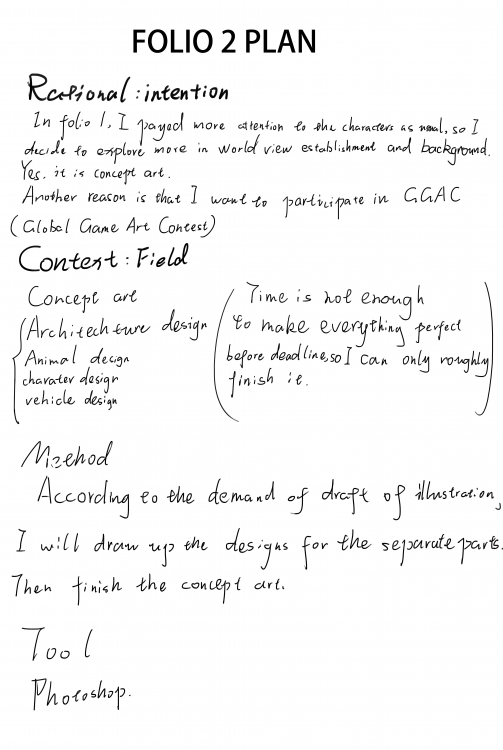 FOLIO 2 PLAN
Rational : intention
In folio 1, I payed more attention to the characters as usual, so I
decide to explore more in world view establishment and background.
Yes. it is concept art.
Another reason is that I want to participate in GGAC
(Global Game Art Contest)
Context : Field
Concept art
Architechture design
Animal design
charater design
vehicle design
Time is not enough
to make everything perfect
before deadline, so I can only roughly
finish it.
Method
According to the demand of draft of illustration,
I will draw up the designs for the separate parts.
Then finish the concept art.
Tool
Photoshop.